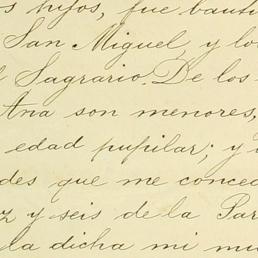 s hijos, fue bauti
San Miguel, y los
l Sagrario. De los
Ana son menores,
edad pupilar; y
des que me conced
z y seis de la Par
la dicha mi mu